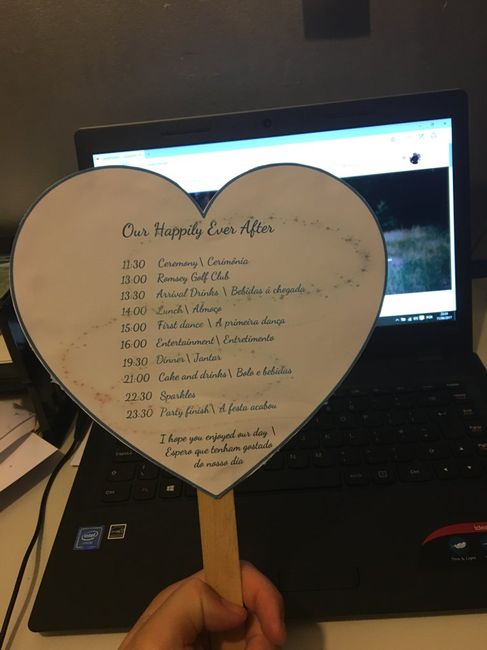 Our Happily Ever After
11:30 Ceremony \ Cerimónia
13:00 Romsey Golf Club
13:30 Arrival Drinks \ Bebidas á chegada
14:00 Lunch \ Almoço
15:00 First dance \ A primeira dança
16:00 Entertainment \ Entretimento
19:30 Dinner \ Jantar
21:00 Cake and drinks \ Bolo e bebidas
22:30 Sparkles
23:30 Party finish \ A festa acabou
I hope you enjoyed our day \
Espero que tenham gostado
do nosso dia
intel